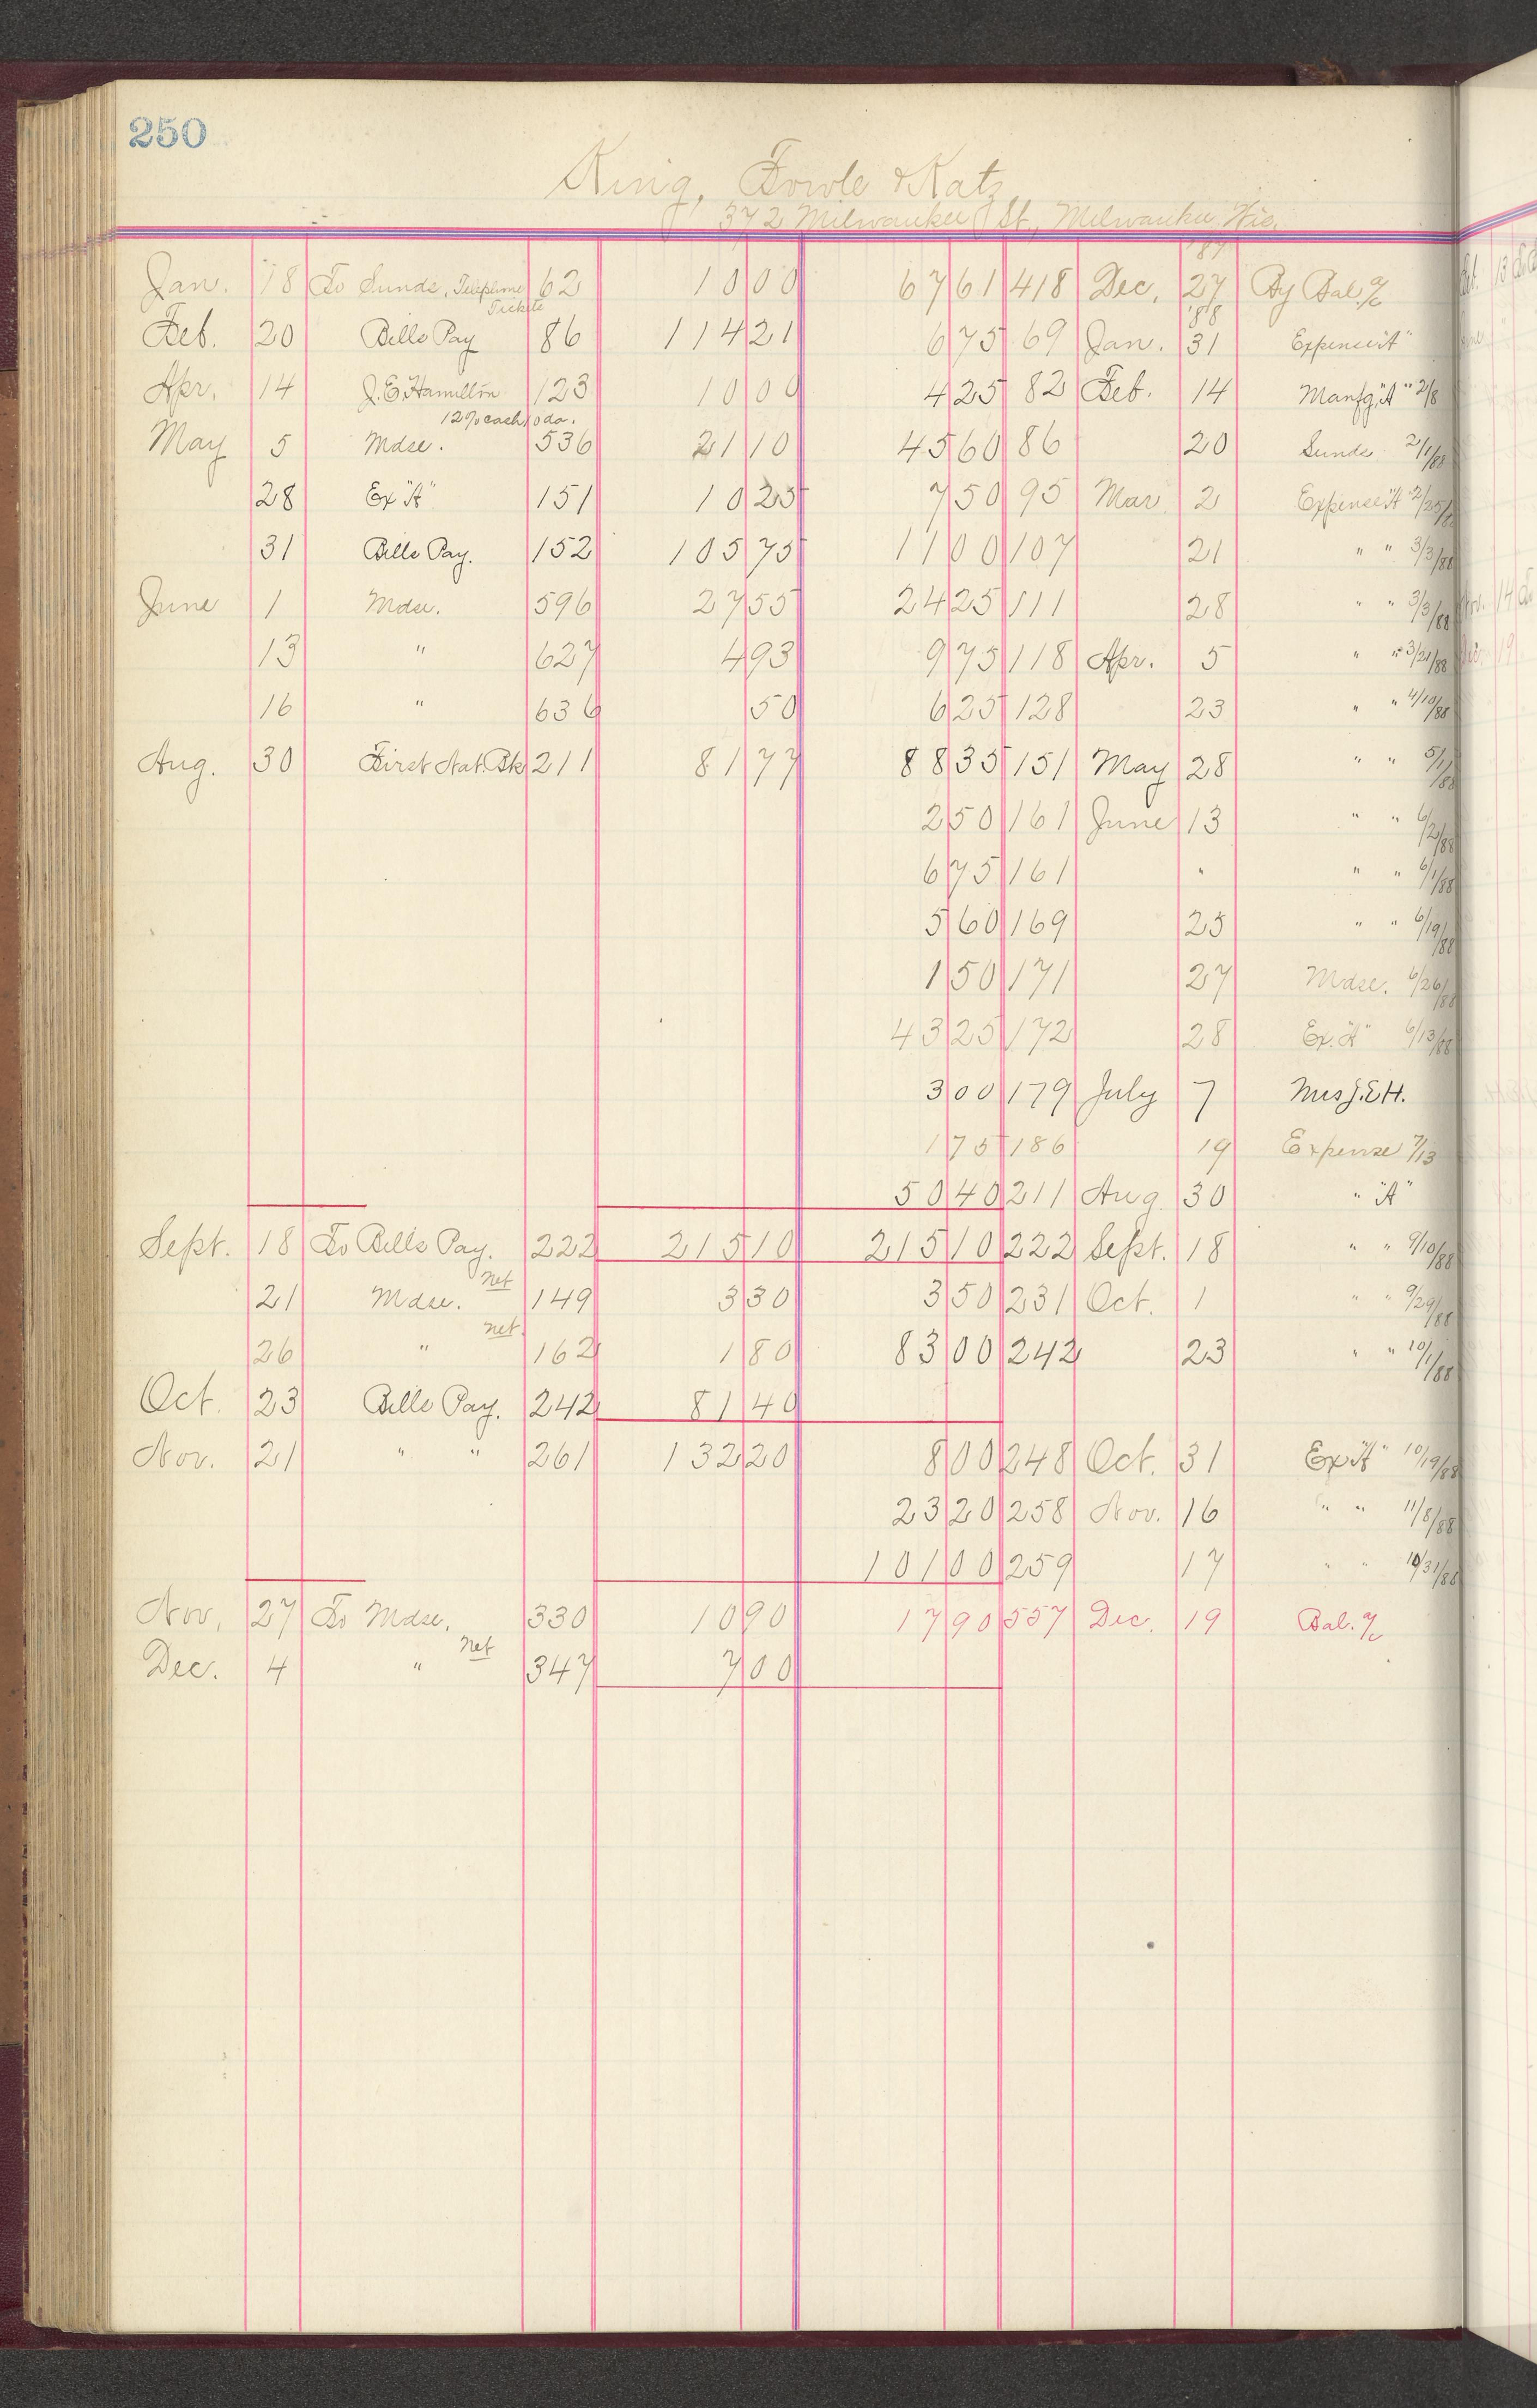 250
King, Fowle & Katz
372 Milwaukee St., Milwaukee Wis.
'87
Jan. 18 To Sunds, Telephone 62 10 00 67 61 418 Dec. 27 By Bal. a/c
Tickets '88
Feb. 20 Bills Pay 86 114 21 6 75 69 Jan. 31 Expense "A"
Apr. 14 J.E. Hamilton 123 10 00 4 25 82 Feb. 14 Manfg. "A" 2/8
12% cash 10 da.
May 5 Mdse. 536 21 10 45 60 86 20 Sunds 2/1/88
28 Ex "A" 151 10 25 7 50 95 Mar 2 Expense "A" 2/25/
31 Bills Pay. 152 105 75 11 00 107 21 " " 3/3/88
June 1 Mdse. 596 27 55 24 25 111 28 " " 3/3/88
13 " 627 4 93 9 75 118 Apr. 5 " " 3/21/88
16 " 636 50 6 25 128 23 " " 4/10/88
Aug. 30 First Nat. Bk 211 81 77 88 35 151 May 28 " " 5/1/88
2 50 161 June 13 " " 6/2/88
6 75 161 " " " 6/1/88
5 60 169 25 " " 6/19/88
1 50 171 27 Mdse. 6/26/88
43 25 172 28 Ex. "A" 6/13/88
3 00 179 July 7 Mrs J.E.H.
1 75 186 19 Expense 7/13
50 40 211 Aug 30 " "A"
Sept. 18 To Bills Pay. 222 215 10 215 10 222 Sept. 18 " " 9/10/88
21 Mdse. net 149 3 30 3 50 231 Oct. 1 " " 9/29/88
26 " net 162 1 80 83 00 242 23 " " 10/1/88
Oct. 23 Bills Pay. 242 81 40
Nov. 21 " " 261 132 20 8 00 248 Oct. 31 Ex "A" 10/19/88
23 20 258 Nov. 16 " " 11/8/88
101 00 259 17 " " 10/31/88
Nov. 27 To Mdse. 330 10 90 17 90 557 Dec. 19 Bal. a/c
Dec. 4 " net 347 7 00